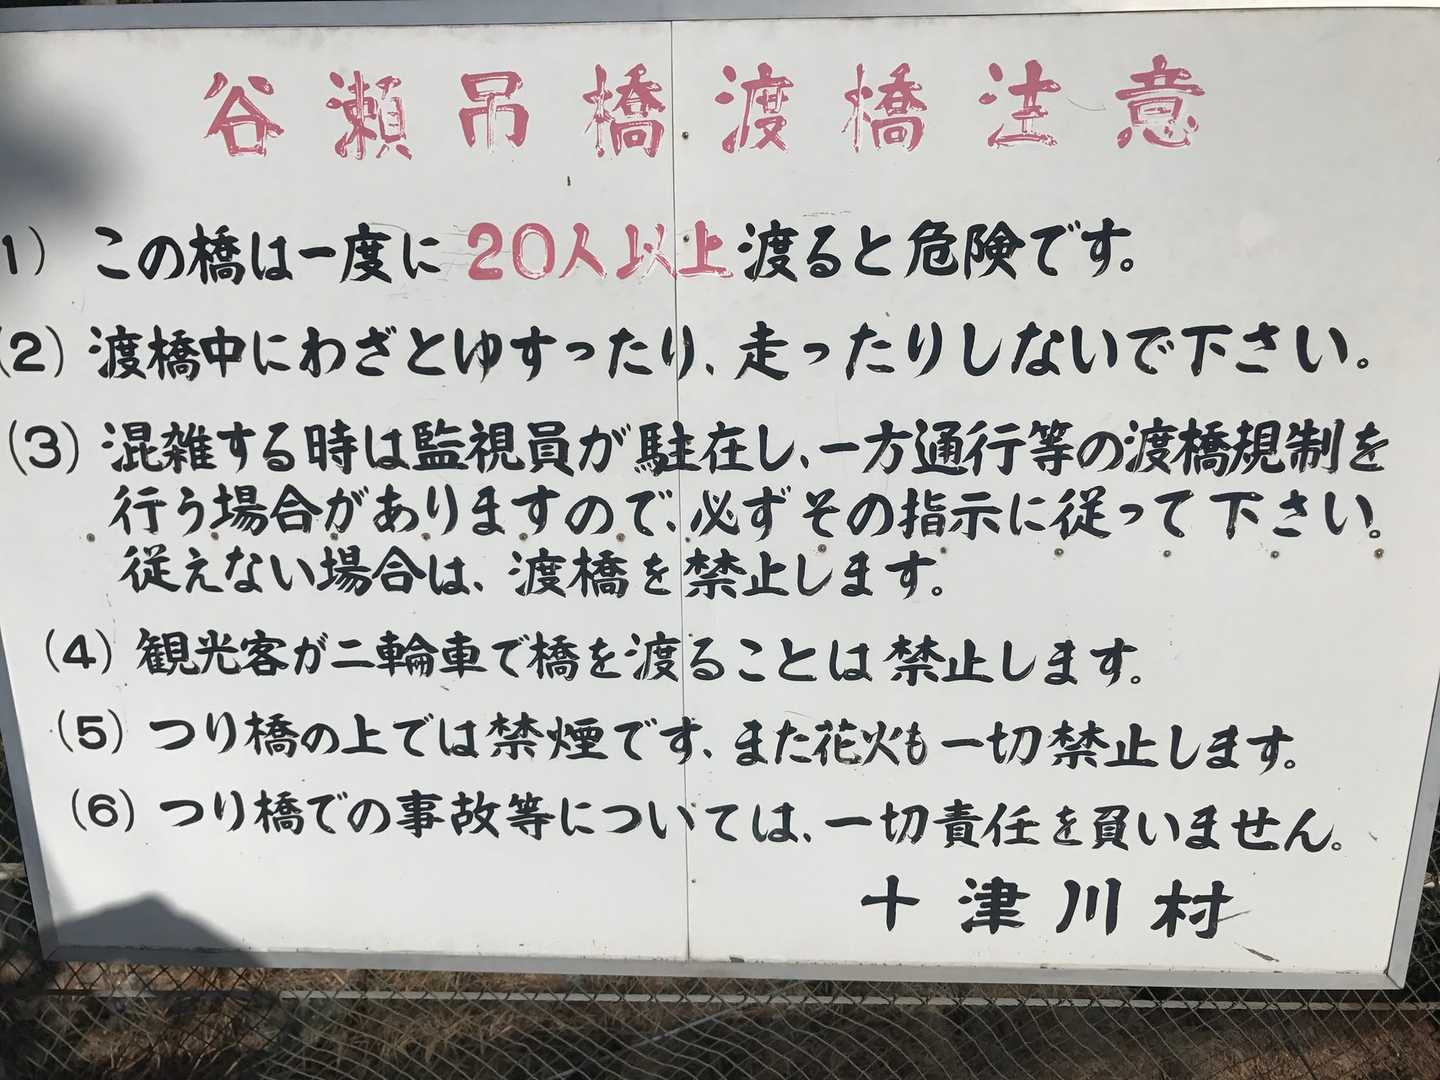 谷瀬吊橋渡橋注意
(1) この橋は一度に20人以上渡ると危険です。
(2) 渡橋中にわざとゆすったり、走ったりしないで下さい。
(3) 混雑する時は監視員が駐在し、一方通行等の渡橋規制を
行う場合がありますので、必ずその指示に従って下さい。
従えない場合は、渡橋を禁止します。
(4) 観光客が二輪車で橋を渡ることは禁止します。
(5) つり橋の上では禁煙です、また花火も一切禁止します。
(6) つり橋での事故等については、一切責任を負いません。
十津川村